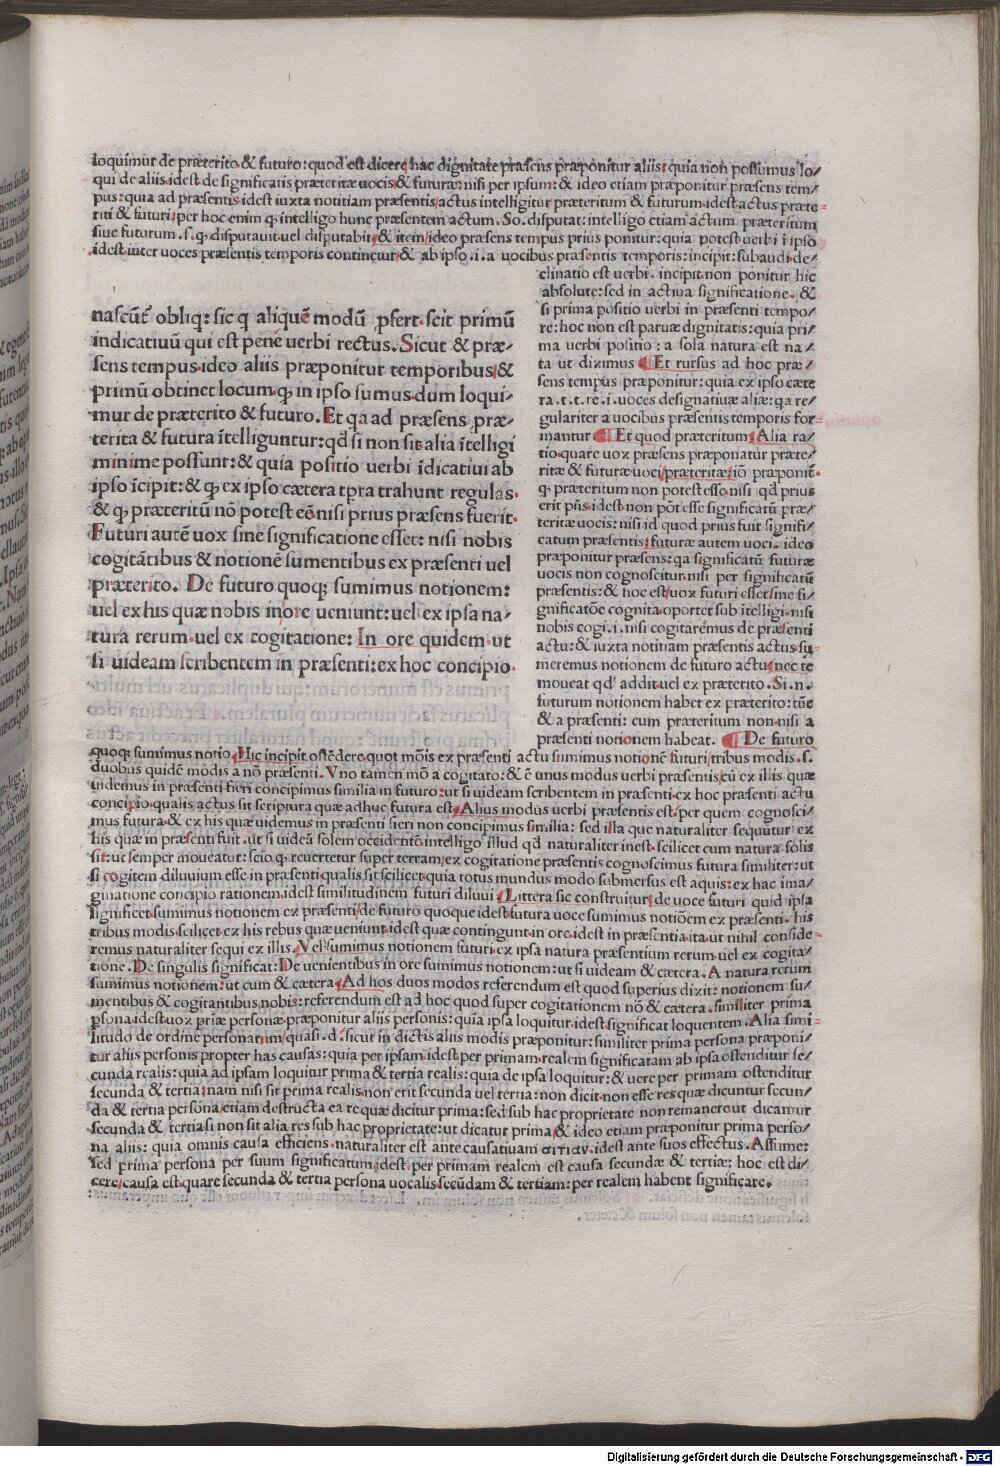 loquimur de præterito & futuro: quod est dicere hac dignitate præsens præponitur aliis: quia non possumus lo⸗
qui de aliis. idest de significatis præteritæ uocis & futuræ: nisi per ipsum: & ideo etiam præponitur præsens tem⸗
pus: quia ad præsentis. idest iuxta notitiam præsentis/ actus intelligitur præteritum & futurum. idest actus præte⸗
riti & futuri/ per hoc enim ꝙ intelligo hunc præsentem actum. So. disputat: intelligo etiam actum præteritum
siue futurum .s. ꝙ disputauit uel disputabit/ & item/ ideo præsens tempus prius ponitur: quia potest uerbi ī ipso
idest inter uoces præsentis temporis continetur/ & ab ipso .i. a uocibus præsentis temporis: incipit: subaudi de⸗
clinatio est uerbi. incipit non ponitur hic
absolute: sed in actiua significatione. &
si prima positio uerbi in præsenti tempo⸗
re: hoc non est paruæ dignitatis: quia pri⸗
ma uerbi positio: a sola natura est na⸗
ta ut diximus ¶ Et rursus ad hoc præ⸗
sens tempus præponitur: quia ex ipso cæte
ra .t. t. re. i. uoces designatiuæ aliæ: qa re⸗
gulariter a uocibus præsentis temporis for
mantur ¶ Et quod præteritum/ Alia ra⸗
tio. quare uox præsens præponatur præte⸗
ritæ & futuræ uoci/ præteritæ/ iō præponit͛
ꝙ præteritum non potest esse. nisi qd̄ prius
erit p̄ns. idest non pōt esse significatū præ⸗
teritæ uocis: nisi id quod prius fuit signifi⸗
catum præsentis: futuræ autem uoci. ideo
præponitur præsens: qa significatū futuræ
uocis non cognoscitur. nisi per significatū
præsentis: & hoc est/ uox futuri esset sine si⸗
gnificatōe cognita. oportet sub ītelligi. nisi
nobis cogi. i. nisi cogitaremus de præsenti
actu: & iuxta notitiam præsentis actus. su⸗
meremus notionem de futuro actu/ nec te
moueat qd̄ addit. uel ex præterito. Si. n.
futurum notionem habet ex præterito: tūc
& a præsenti: cum præteritum non nisi a
præsenti notionem habeat. ¶ De futuro
nascūt͛ obliq: sic q aliquē modū ꝓfert. scit primū
indicatiuū qui est pene uerbi rectus. Sicut & præ⸗
sens tempus. ideo aliis præponitur temporibus/ &
primū obtinet locum. ꝙ in ipso sumus. dum loqui⸗
mur de præterito & futuro. Et qa ad præsens præ⸗
terita & futura ītelliguntur: qd̄ si non sit. alia ītelligi
minime possunt: & quia positio uerbi īdicatiui ab
ipso īcipit: & ꝙ ex ipso cætera tp̄ra trahunt regulas.
& ꝙ præteritū nō potest eē. nisi prius præsens fuerit.
Futuri autē uox sine significatione esset: nisi nobis
cogitātibus & notionē sumentibus ex præsenti uel
præterito. De futuro quoqꝫ sumimus notionem:
uel ex his quæ nobis inore ueniunt: uel ex ipsa na⸗
tura rerum. uel ex cogitatione: In ore quidem. ut
si uideam scribentem in præsenti: ex hoc concipio.
quoqꝫ sumimus notio./ Hic incipit ostēdere quot mōis ex præsenti actu sumimus notionē futuri/ tribus modis .s.
duobus quidē modis a nō præsenti. Vno tamen mō a cogitato: & ē unus modus uerbi præsentis/ cū ex illis quæ
uidemus in præsenti fieri concipimus similia in futuro: ut si uideam scribentem in præsenti. ex hoc præsenti actu
concipio. qualis actus sit scriptura quæ adhuc futura est/ Alius modus uerbi præsentis est. per quem cognosci⸗
mus futura. & ex his quæ uidemus in præsenti fieri non concipimus similia: sed illa que naturaliter sequūtur ex
his quæ in præsenti fuit. ut si uideā solem occidentē. intelligo illud qd̄ naturaliter inest. scilicet cum natura solis
sit: ut semper moueatur: scio. ꝙ reuertetur super terram/ ex cogitatione præsentis cognoscimus futura similiter: ut
si cogitem diluuium esse in præsenti. qualis sit scilicet. quia totus mundus modo submersus est aquis: ex hac ima⸗
ginatione concipio rationem. idest similitudinem futuri diluui/ Littera sic construitur/ de uoce futuri quid ipsa
significet. sumimus notionem ex præsenti/ de futuro quoque idest futura uoce sumimus notiōem ex præsenti. his
tribus modis. scilicet ex his rebus quæ ueniunt. idest quæ contingunt in ore. idest in præsentia. ita ut nihil conside⸗
remus naturaliter sequi ex illis. Vel sumimus notionem futuri ex ipsa natura præsentium rerum uel ex cogita⸗
tione. De singulis significat: De uenientibus in ore sumimus notionem: ut si uideam & cætera. A natura rerum
sumimus notionem: ut cum & cætera/ Ad hos duos modos referendum est quod superius dixit: notionem su⸗
mentibus & cogitantibus nobis: referendum est ad hoc quod super cogitationem nō & cætera. similiter prima
ꝑsona. idest uox priæ personæ præponitur aliis personis: quia ipsa loquitur. idest significat loquentem. Alia simi⸗
litudo de ordine personarum/ quasi .d. sicut in dictis aliis modis præponitur: similiter prima persona præponi⸗
tur aliis personis propter has causas: quia per ipsam. idest per primam. realem significatam ab ipsa ostenditur se⸗
cunda realis: quia ad ipsam loquitur prima & tertia realis: quia de ipsa loquitur: & uere per primam ostenditur
secunda & tertia/ nam nisi sit prima realis. non erit secunda uel tertia: non dicit. non esse res quæ dicuntur secun⸗
da & tertia persona/ etiam destructa ea re quæ dicitur prima: sed sub hac proprietate non remanerout dicantur
secunda & tertia. si non sit alia res sub hac proprietate: ut dicatur prima/ & ideo etiam præponitur prima perso⸗
na aliis: quia omnis causa efficiens. naturaliter est ante causatiuam αιτιαν. idest ante suos effectus. Assume:
sed prima persona per suum significatum. idest. per primam realem est causa secundæ & tertiæ: hoc est di⸗
cere/ causa est. quare secunda & tertia persona uocalis. secūdam & tertiam: per realem habent significare.
Digitalisierung gefördert durch die Deutsche Forschungsgemeinschaft - DFG